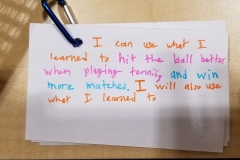 I can use what I
learned to hit the ball better
when playing tennis and win
more matches. I will also use
what I learned to